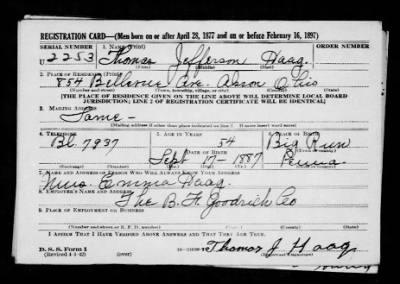 REGISTRATION CARD—(Men born on or after April 28, 1877 and on or before February 16, 1897)
SERIAL NUMBER 1. NAME (Print) ORDER NUMBER
U 2253 Thomas Jefferson Haag
(First) (Middle) (Last)
2. PLACE OF RESIDENCE (Print)
854 Bellevue Ave. Akron Ohio
(Number and street) (Town, township, village, or city) (County) (State)
[THE PLACE OF RESIDENCE GIVEN ON THE LINE ABOVE WILL DETERMINE LOCAL BOARD
JURISDICTION; LINE 2 OF REGISTRATION CERTIFICATE WILL BE IDENTICAL]
3. MAILING ADDRESS
Same -
[Mailing address if other than place indicated on line 2. If same insert word same]
4. TELEPHONE 5. AGE IN YEARS 6. PLACE OF BIRTH
54 Big Run
Bl. 7937 DATE OF BIRTH
Sept 17 - 1887 Penna.
(Exchange) (Number) (Mo.) (Day) (Yr.) (State or country)
7. NAME AND ADDRESS OF PERSON WHO WILL ALWAYS KNOW YOUR ADDRESS
Mrs. Emma Haag.
8. EMPLOYER'S NAME AND ADDRESS
The B. F. Goodrich Co
9. PLACE OF EMPLOYMENT OR BUSINESS
(Number and street or R. F. D. number) (Town) (County) (State)
I AFFIRM THAT I HAVE VERIFIED ABOVE ANSWERS AND THAT THEY ARE TRUE.
D. S. S. Form 1
(Revised 4-1-42) Thomas J Haag